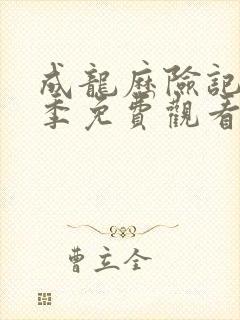 成龍歷險記
季免費觀看
曹立全